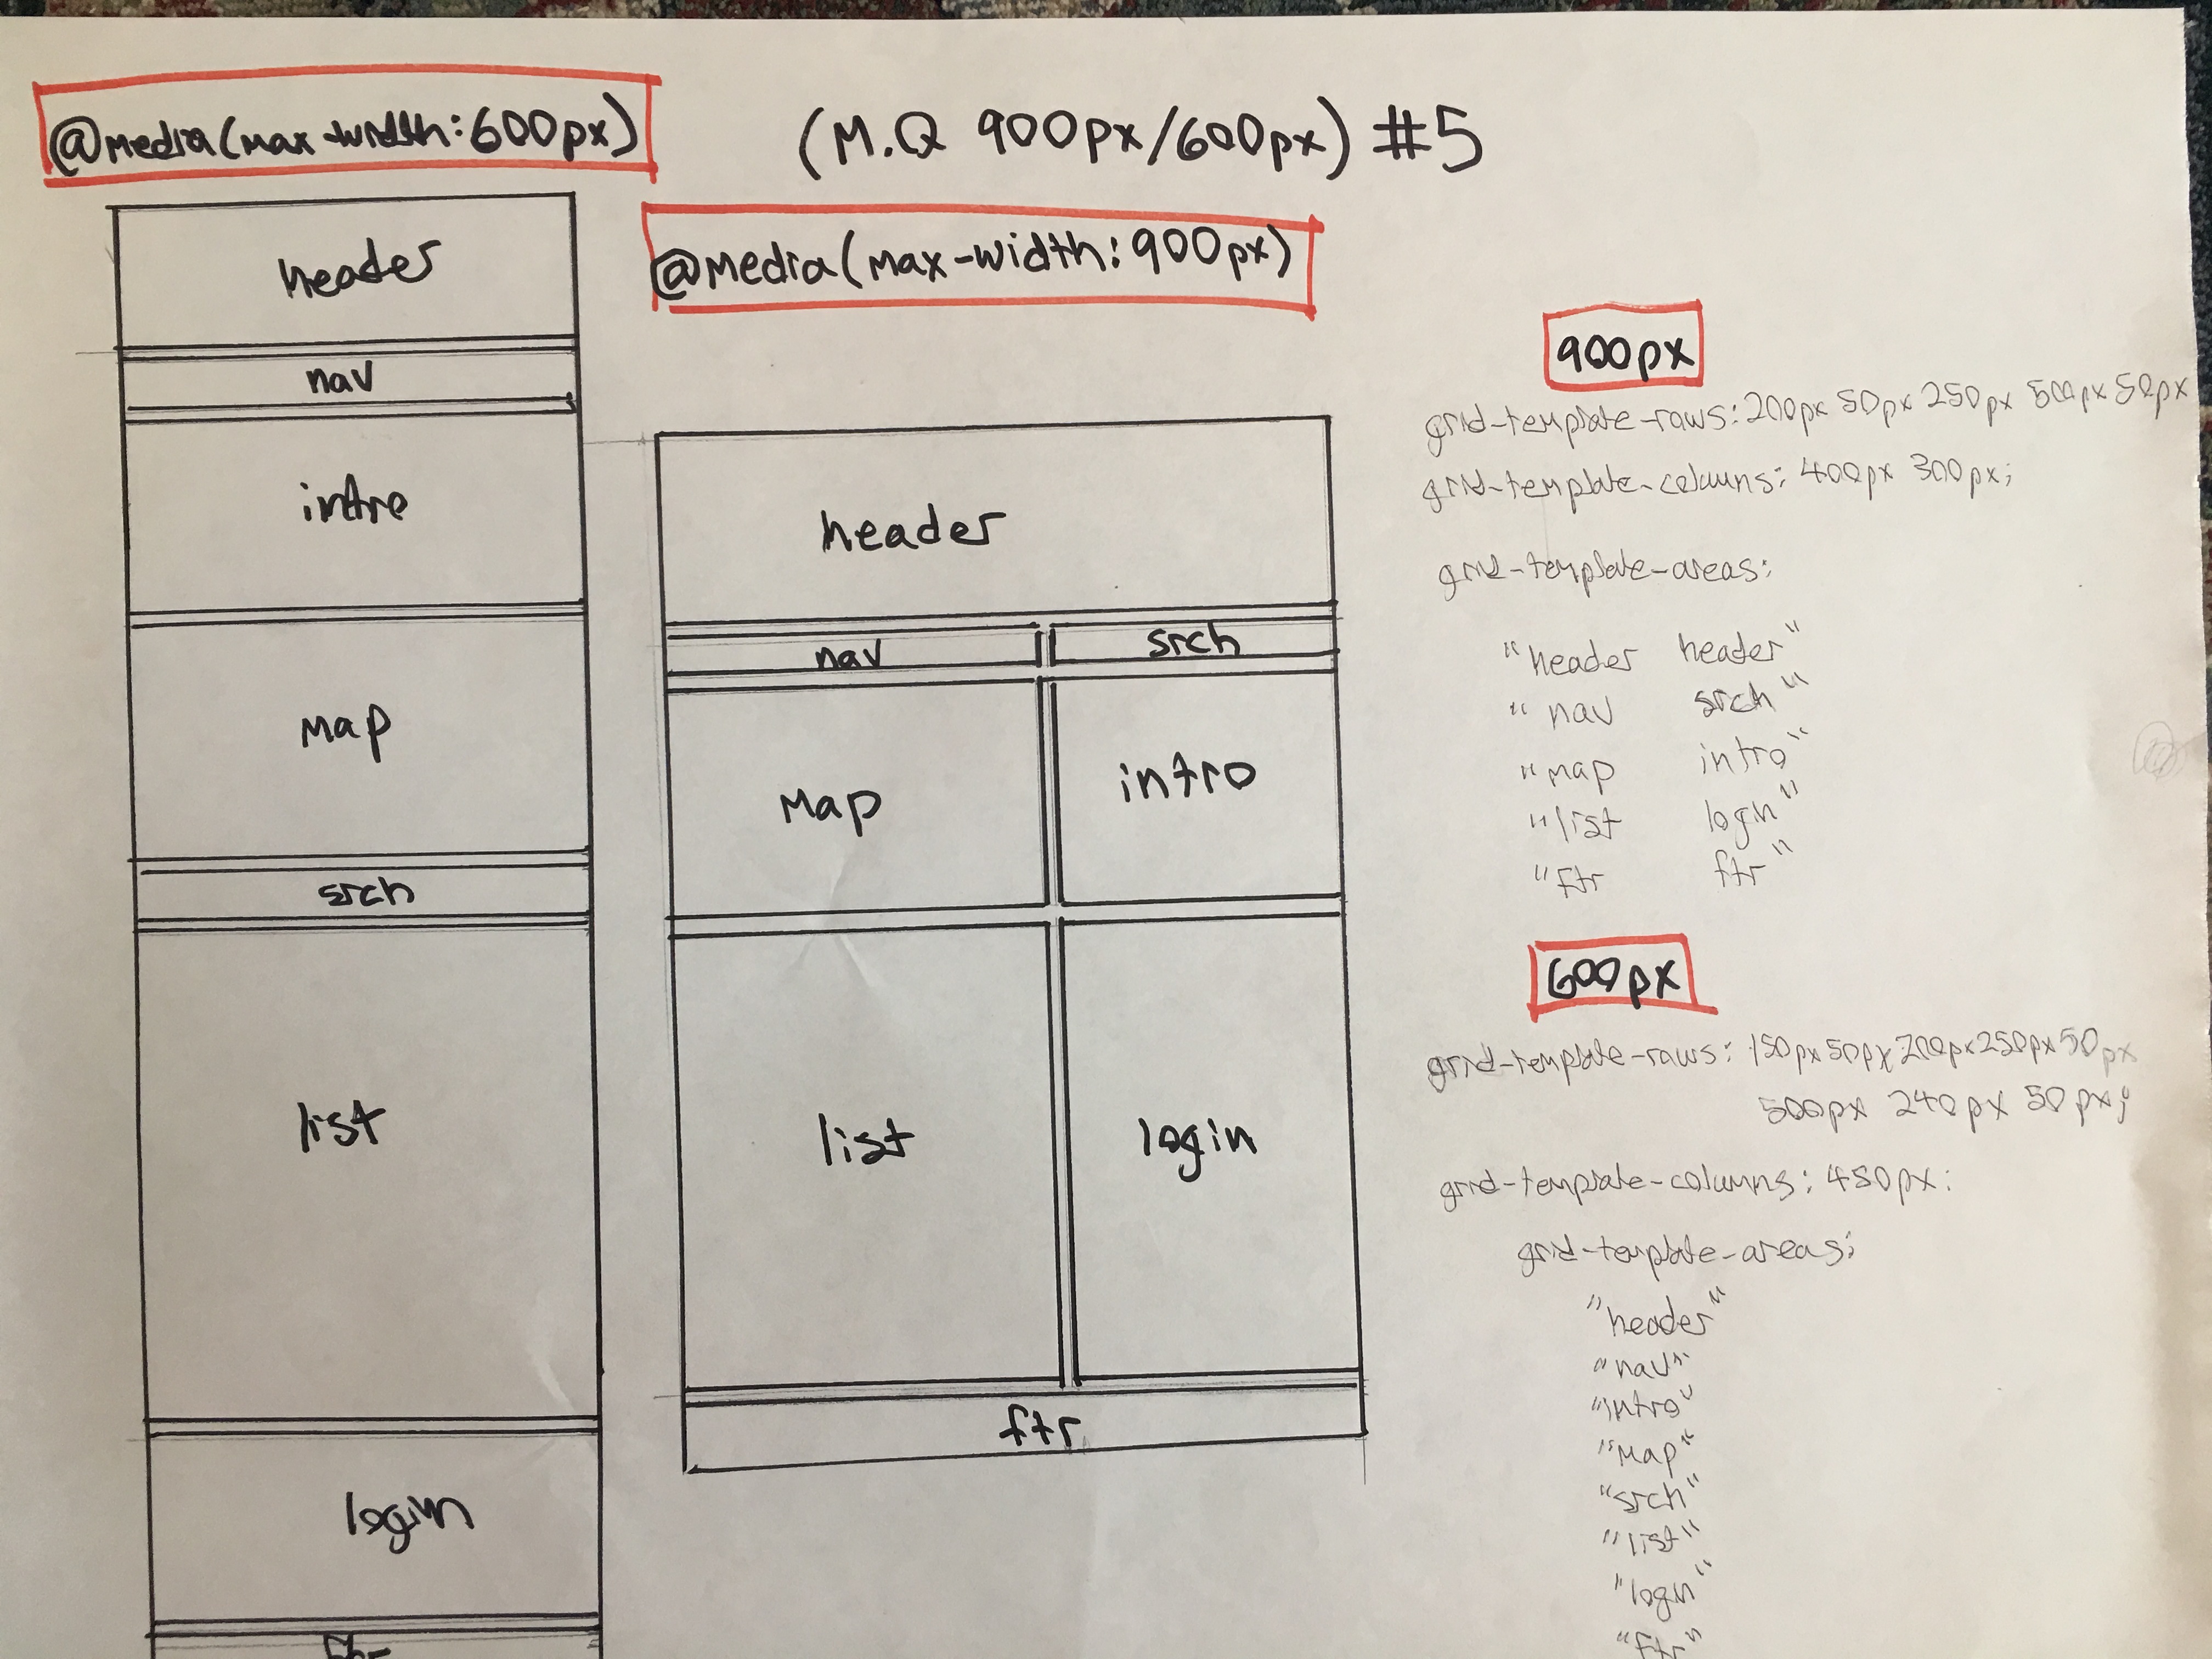 @media(max-width:600px)
(M.Q 900px/600px) #5
header
nav
intro
map
srch
list
login
@media(max-width:900px)
header
nav srch
map intro
list login
ftr
900px
grid-template-rows: 200px 50px 250px 500px 50px
grid-template-columns: 400px 300px;
grid-template-areas:
"header header"
"nav srch"
"map intro"
"list login"
"ftr ftr"
600px
grid-template-rows: 150px 50px 200px 250px 50px
500px 240px 50px;
grid-template-columns: 450px;
grid-template-areas:
"header"
"nav"
"intro"
"map"
"srch"
"list"
"login"
"ftr"